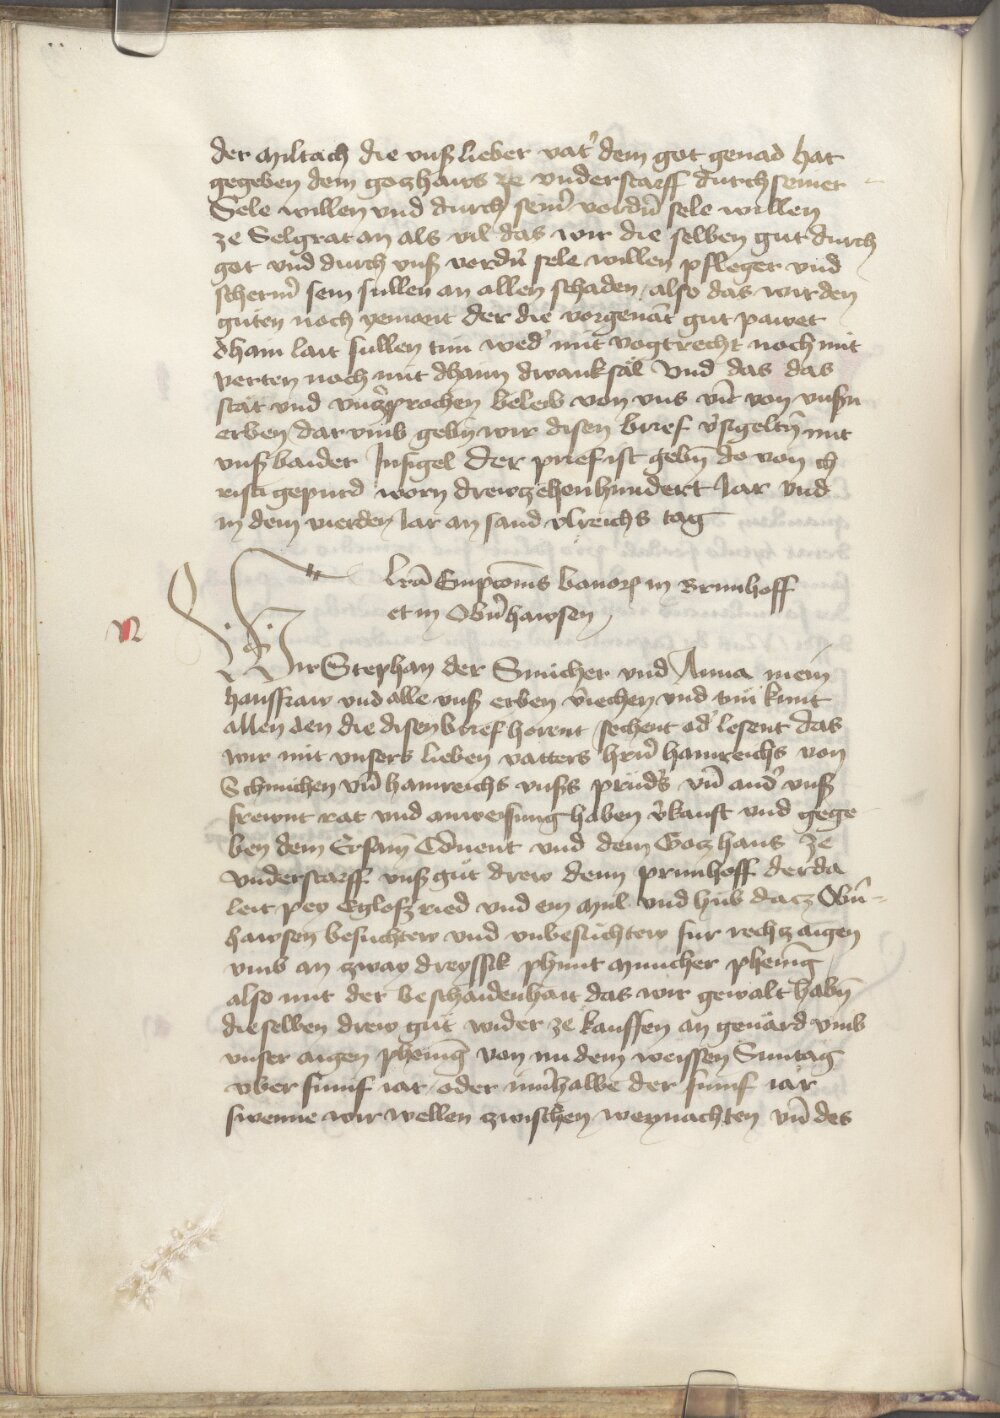 der Miltach die vnß lieber vat' dem got genad hat
gegeben dem gozhaws ze vnderstorff durch seiner
Sele willen vnd durch sein' vordn̄ sele willen
ze Selgrat an als vil das wir die selben gut durch
got vnd durch vnß vordn̄ sele willen pfleger vnd
scherm̄ sein sullen an allen schaden / also das wir den
guten noch yemant der die vorgenāt gut pawet
dhain lait sullen tun wed' mit vogtrecht noch mit
verten noch mit dhainn dwanksäl Vnd das das
stät vnd vnzeprochen beleib von vns vn̄ von vnßn
erben / dar vmb gebn̄ wir disen brief v'sigeltn̄ mit
vnß baider Jnsigel Der prief ist gebn̄ do von ch
risti gepurd worn drewzehenhundert Jar vnd
in dem vierden Jar an sand vlreichs tag
lr̄a Empcōnis bonor in Brunhoff
et in Obn̄hawsen
Wir Stephan der Smicher vnd Anna mein
hausfraw vnd alle vnß erben v'iechen vnd tun kunt
allen den die disen brief horent / sechent od' lesent das
wir mit vnsers lieben vatters hrn̄ hainreichs von
Schmichen vn̄ hainreichs vnßs prud's vn̄ and' vnß
frewnt rat vnd anweisung haben v'kauft vnd gege
ben dem Ersam̄ Cōnent vnd dem Gozhaus ze
vnderstorff vnß gut drew denn prunhoff der da
leit pey Eglofzried vnd ein mul vnd hub dacz Obn̄-
hawsen besuchtew vnd vnbesuchtew fur rechz aigen
vmb an zway dreyssik phunt municher phenīg
also mit der beschaidenhait das wir gewalt habn̄
die selben drew gut wider ze kauffen an geuärd vmb
vnser aigen phenīg von nu dem weissen Suntag
vber funf iar / oder inn̄halbe der funf iar
swenne wir wellen zwischen weynachten vn̄ des